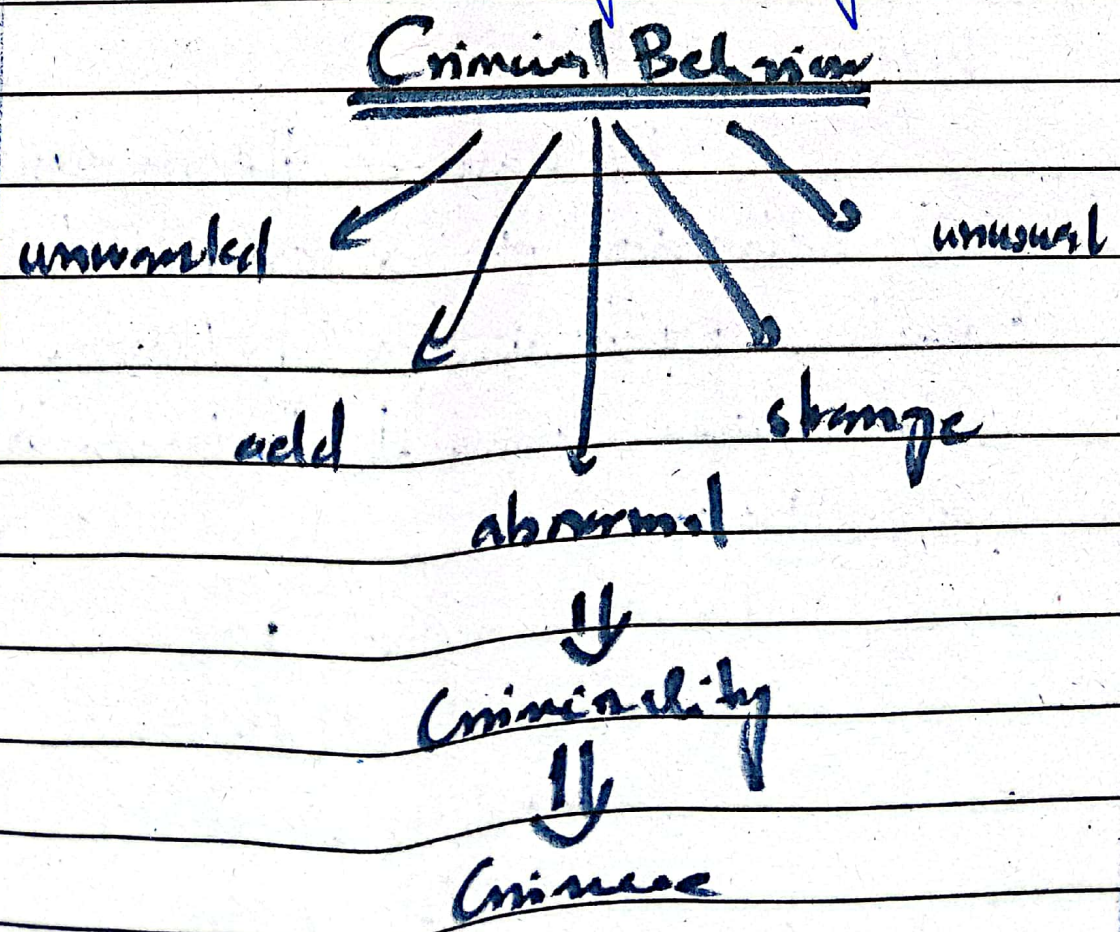 Criminal Behavior
unwanted
unusual
odd
strange
abnormal
Criminality
Crime